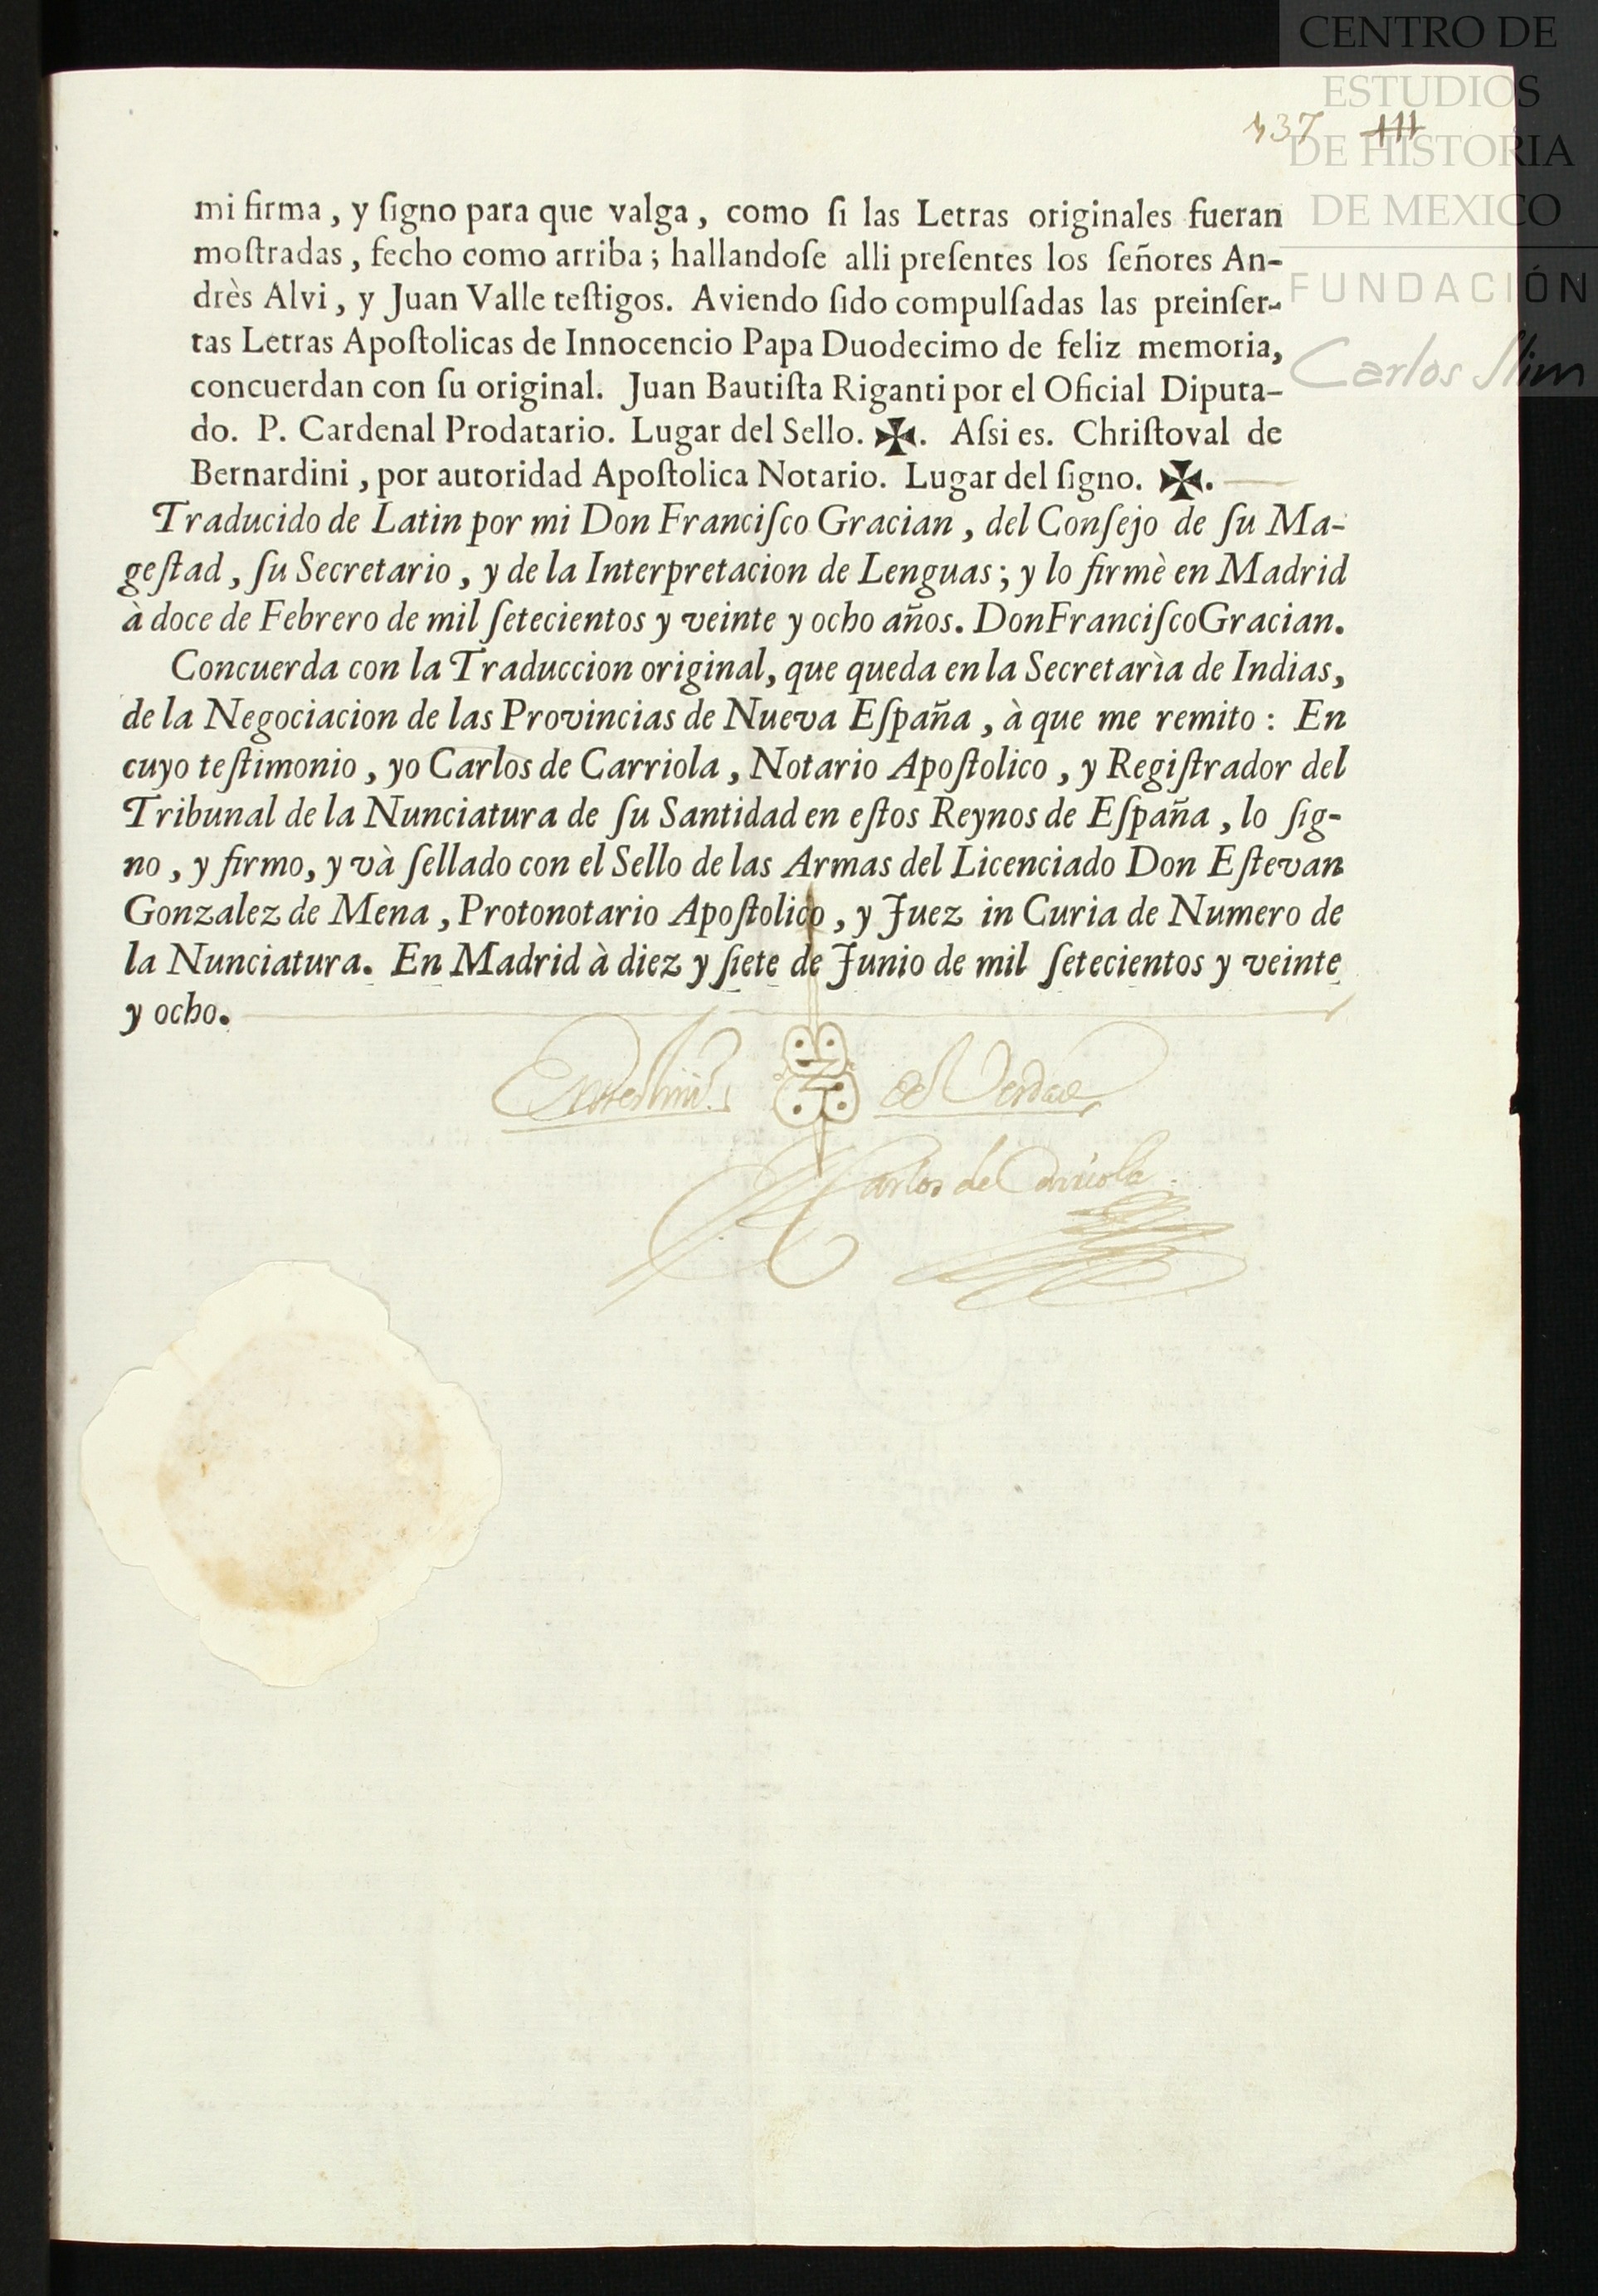 CENTRO DE
ESTUDIOS
DE HISTORIA
DE MEXICO
FUNDACIÓN
Carlos Slim
137 111
mi firma, y ſigno para que valga, como ſi las Letras originales fueran
moſtradas, fecho como arriba; hallandoſe alli preſentes los ſeñores An-
drès Alvi, y Juan Valle teſtigos. Aviendo ſido compulſadas las preinſer-
tas Letras Apoſtolicas de Innocencio Papa Duodecimo de feliz memoria,
concuerdan con ſu original. Juan Bautiſta Riganti por el Oficial Diputa-
do. P. Cardenal Prodatario. Lugar del Sello. ✠. Aſsi es. Chriſtoval de
Bernardini, por autoridad Apoſtolica Notario. Lugar del ſigno. ✠.
Traducido de Latin por mi Don Franciſco Gracian, del Conſejo de ſu Ma-
geſtad, ſu Secretario, y de la Interpretacion de Lenguas; y lo firmè en Madrid
à doce de Febrero de mil ſetecientos y veinte y ocho años. Don Franciſco Gracian.
Concuerda con la Traduccion original, que queda en la Secretarìa de Indias,
de la Negociacion de las Provincias de Nueva Eſpaña, à que me remito: En
cuyo teſtimonio, yo Carlos de Carriola, Notario Apoſtolico, y Regiſtrador del
Tribunal de la Nunciatura de ſu Santidad en eſtos Reynos de Eſpaña, lo ſig-
no, y firmo, y và ſellado con el Sello de las Armas del Licenciado Don Eſtevan
Gonzalez de Mena, Protonotario Apoſtolico, y Juez in Curia de Numero de
la Nunciatura. En Madrid à diez y ſiete de Junio de mil ſetecientos y veinte
y ocho.
En testimo de Verdad
Carlos de Carriola